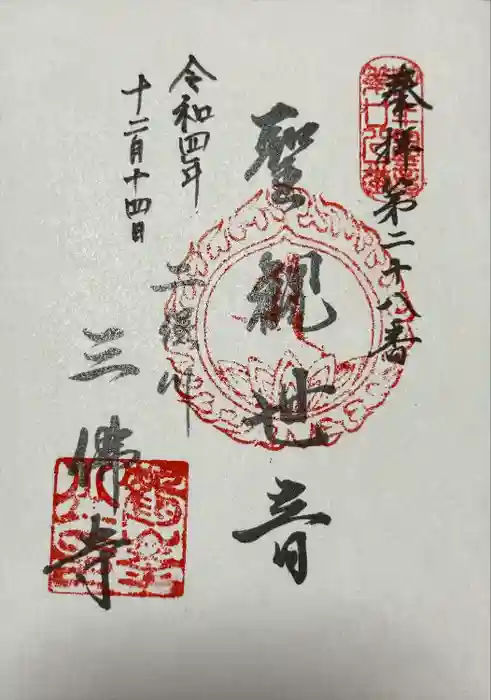 奉拝第二十八番
聖観世音
二俣川
三佛寺
令和四年
十二月十四日